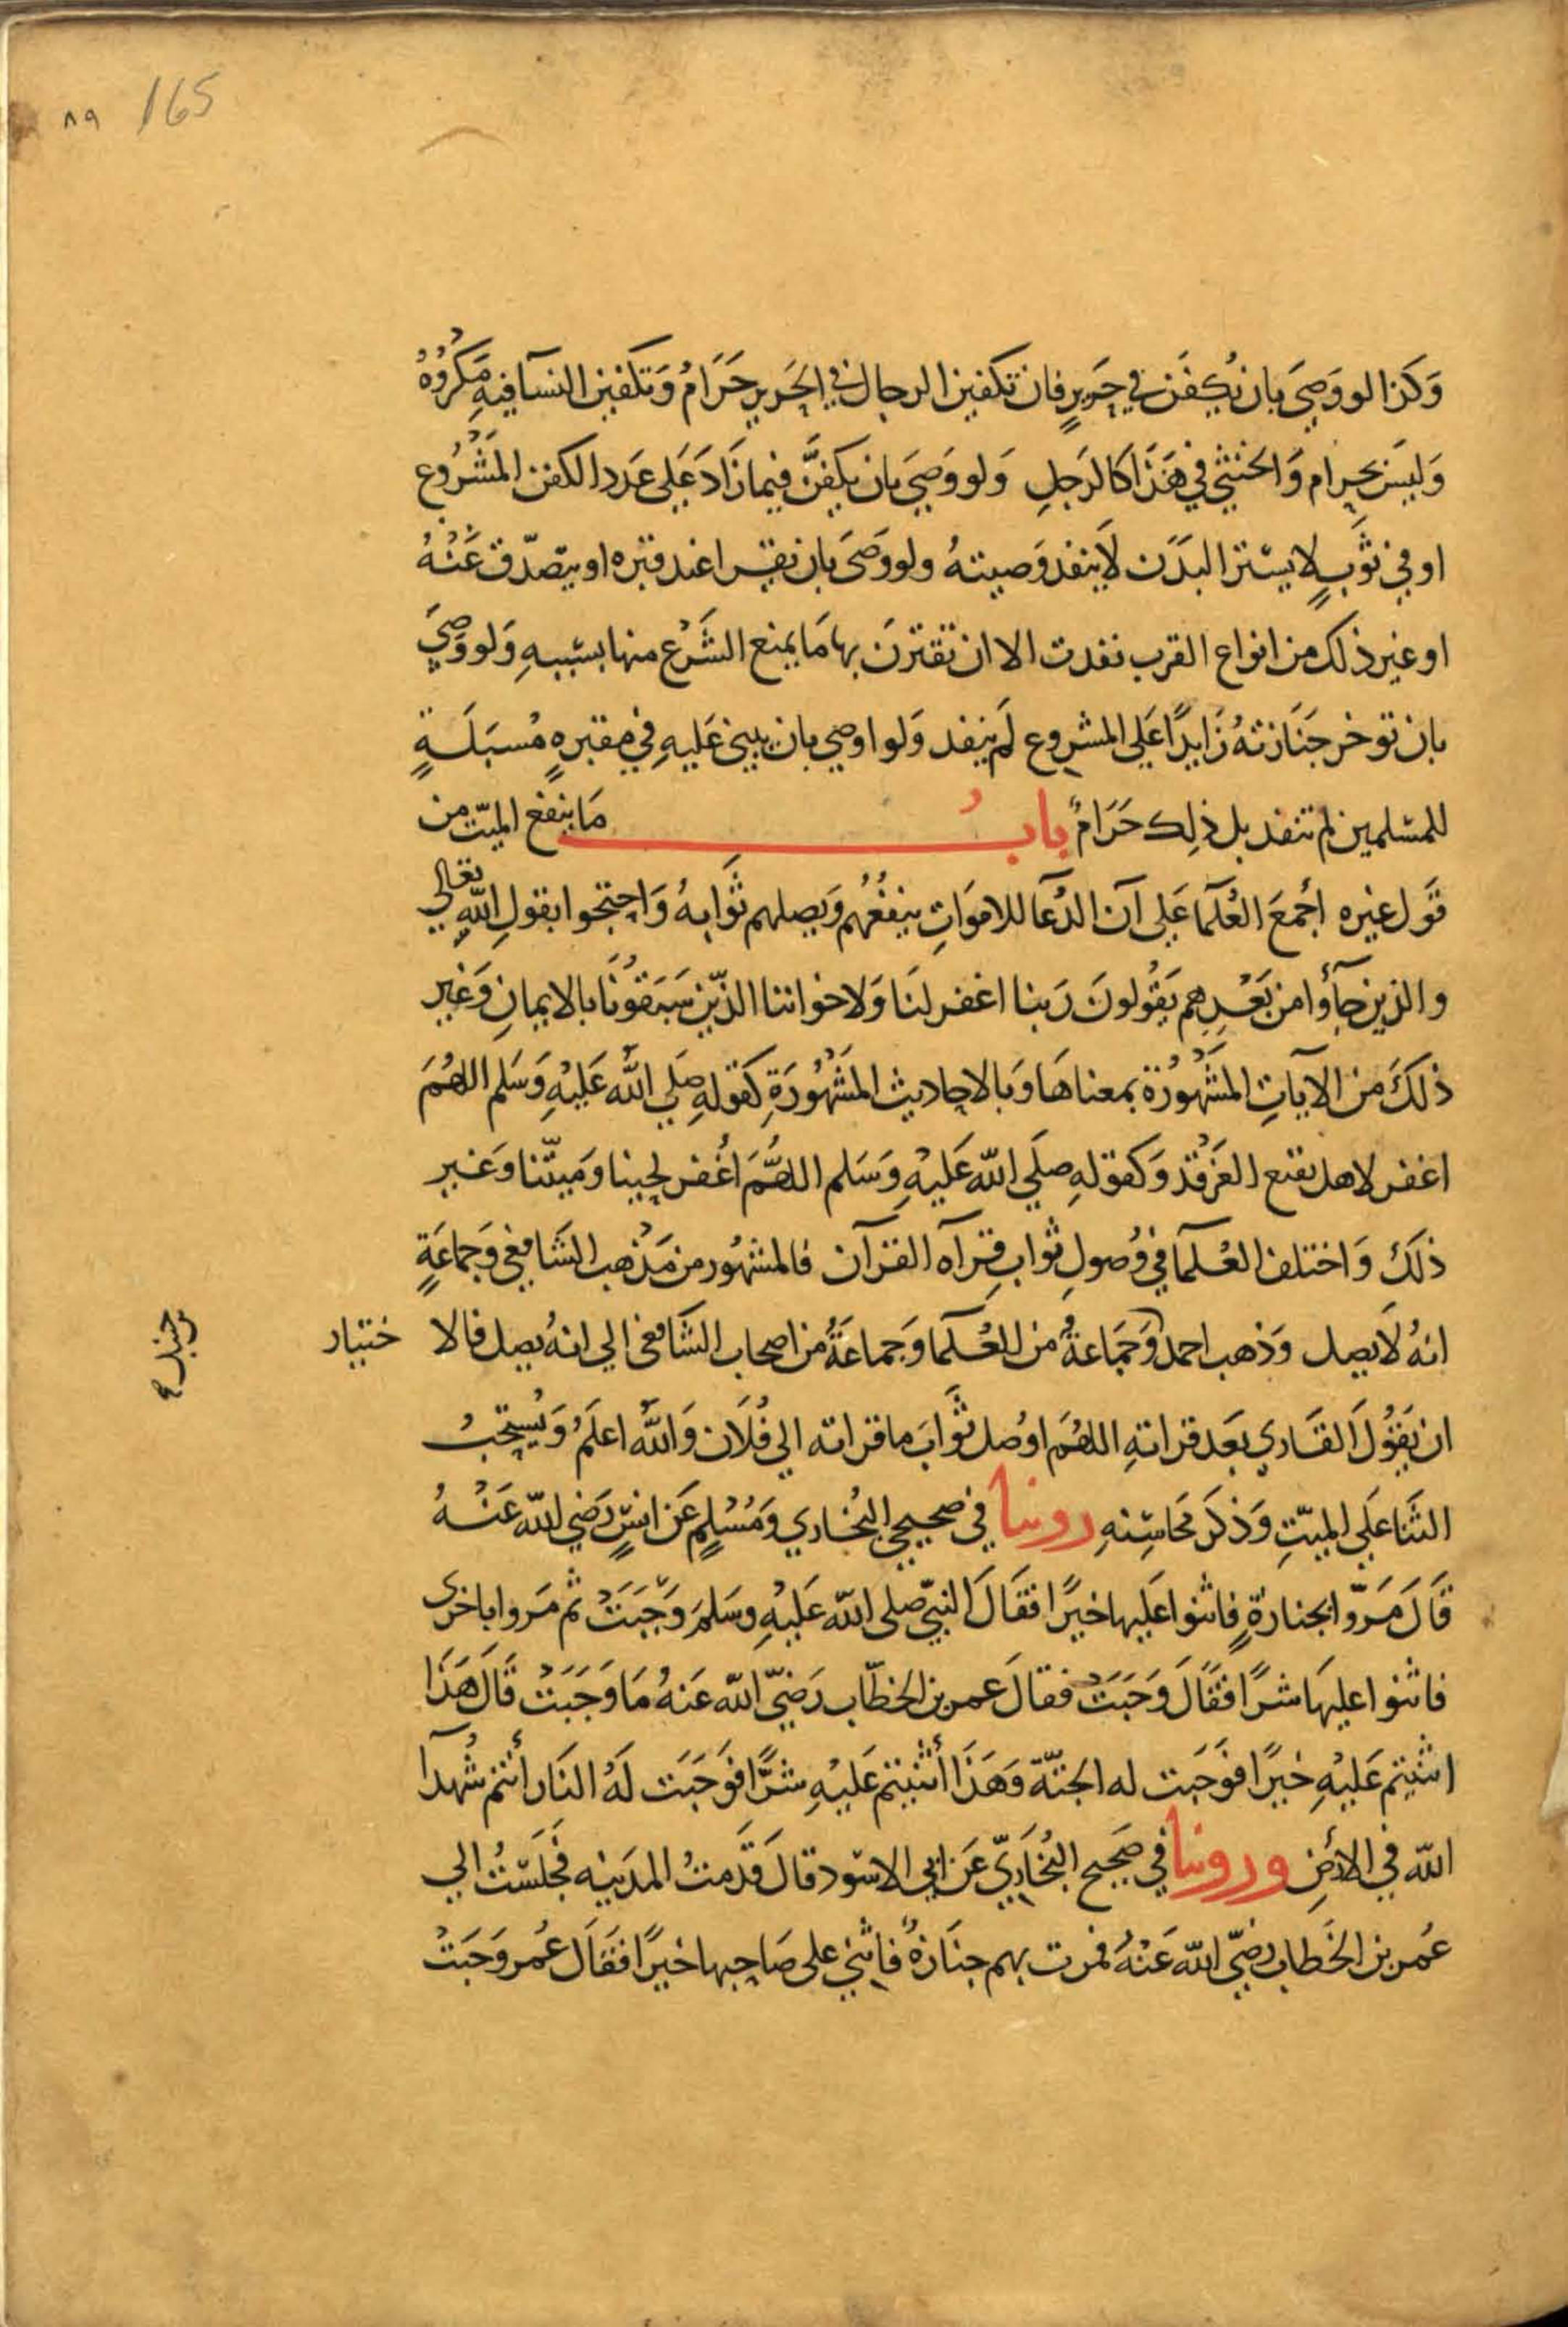 ٨٩ 165
وَكذا لو وَصىَ بان يُكفن في حَريرٍ فان تكفين الرجال في الحَرير حَرَامُ وَتكفين النسآ فيهِ مَكرُوُهُ
وَليسَ بحرام وَالخنثي في هَذَا كالرَجلِ وَلو وَصيَ بان يكفنَّ فيما زَادَ عَلى عَدد الكفن المَشْرُوع
او في ثَوبٍ لا يستر البدَن لاَ ينفد وَصيتهُ ولو وَصىَ بان يقرا عند قبره او يتصّدق عَنْهُ
او غير ذلك من انواع القرب نفدت الا ان تقترنَ بها مَا يمنع الشَرْع منها بسَببهِ وَلو وَصيَ
بان توخر جَنَازتهُ زَايدًا عَلى المشروع لَم ينفد وَلو اوصي بان يبني عَليهِ في مقبرهٍ مُسبَلَةٍ
للمسْلمين لم تنفد بل ذلِك حَرَامٌ بابُ مَا ينفع الميّت من
قَول غيره اجْمعَ العُلَمآ عَلي آن الدُعآ للامَوَاتِ ينفعُهُم وَيصلهم ثَوَابهُ وَاحتجوا بقولِ اللهِ تعالي
والذين جآؤا من بَعْدِهم يَقُولونَ رَبنا اغفر لنَا وَلاخواننا الذّين سَبَقوُنَا بالايمانِ وَغير
ذلكَ من الآيَاتِ المَشْهُوُرَة بمعناهَا وَبالاحاديث المَشْهُورَةِ كقَولهِ صلي اللّه عَليْهِ وَسَلم اللهُمَ
اغفر لاهل بقيع الغَرْقد وَكقولهِ صلَي اللّه عَليْهِ وَسَلم اللهُمَّ اغْفر لحينا وَميّتنا وَغير
ذلكَ وَاختلف العُلَمآ في وُصولِ ثواب قِرآه القرآن فالمشهُور من مَذْهب الشَافعي وَجماعَةٍ
انهُ لاَ يصل وَذهب احمد وَجَمَاعةُ من العُلَما وَجماعَةُ من اصحاب الشَافعى الي انهُ يصل فالا ختيار
بن حنبل صح
ان يَقوُلَ القَاري بعَد قراتهِ اللهُمَ اوْصل ثَوابَ ما قراته الي فُلاَن وَاللّهُ اعلَمُ وَيُستحَبُ
الثَنا عَلي الميّتِ وَذكرَ مَحَاسِنهِ روينا في صحيحي البُخاري وَمُسْلمٍ عَن انسٍ رَضي اللّه عَنْهُ
قَالَ مَرّوا بجنازةٍ فاثنوا عَليها خيرًا فقَالَ النبيّ صلي اللّه عَليْهِ وسَلمَ وَجَبَتْ ثم مَروا باخرى
فاثنوا عليهَا شرًا فقَالَ وَجَبَتْ فقالَ عمر بن الخطّاب رَضيّ اللّه عَنهُ مَا وَجَبَتْ قَالَ هَذَا
اثنيتم عَليْهِ خيرًا فوَجَبَت له الجنّة وَهَذَا أثنيتم عَليْهِ شرًّا فوَجَبَت لَهُ النَار أنتم شُهدآ
اللّه في الأرْضِ وروينا في صَحيح البُخَاريّ عَن ابي الاسْود قالَ قَدَمتُ المدَينه فَجلَسْتُ الي
عُمر بن الخَطاب رضيّ اللّه عَنْهُ فمرت بهم جنَازةٌ فاثني على صَاحبها خيرًا فقَالَ عُمر وَجَبَتْ